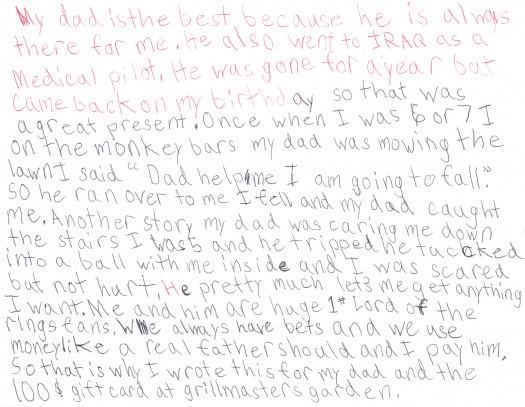 My dad is the best because he is always
there for me. He also went to IRAQ as a
Medical pilot. He was gone for a year but
came back on my birthday so that was
a great present. Once when I was 6 or 7 I
on the monkey bars my dad was mowing the
lawn I said "Dad help me I am going to fall."
So he ran over to me I fell and my dad caught
me. Another story my dad was caring me down
the stairs I was 5 and he tripped he tucked
into a ball with me inside and I was scared
but not hurt. He pretty much lets me get anything
I want. Me and him are huge 1# Lord of the
rings fans. We always have bets and we use
money like a real father should and I pay him.
So that is why I wrote this for my dad and the
100$ gift card at grillmasters garden.